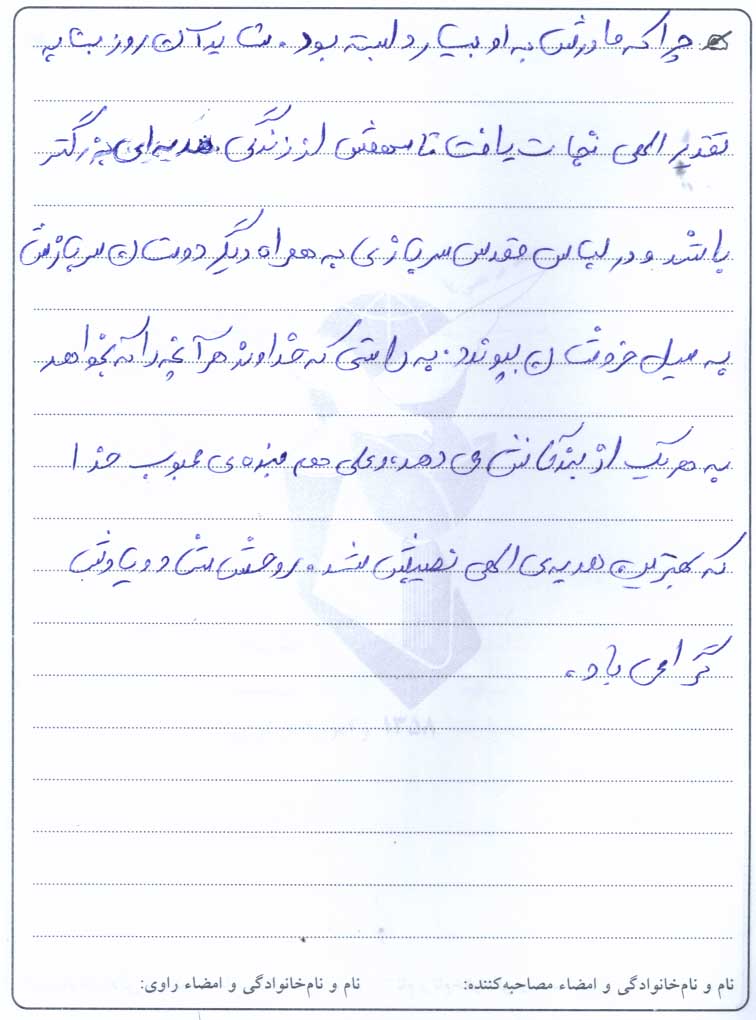 چرا که مادرش به او بسیار دلبسته بود. شاید آن روز بنا به
تقدیر الهی نجات یافت تا سهمش از زندگی هدیه‌ای بزرگتر
باشد و در لباس مقدس سربازی به همراه دیگر دوستان سربازش
به سیل خروشان بپیوندد. به راستی که خداوند هر آنچه را که بخواهد
به هر یک از بندگانش می دهد، و علی هم بنده‌ی محبوب خدا
که بهترین هدیه‌ی الهی نصیبش شد. روحش شاد و یادش
گرامی باد.
۱۳۵۸
نام و نام‌خانوادگی و امضاء مصاحبه‌کننده: نام و نام‌خانوادگی و امضاء راوی: